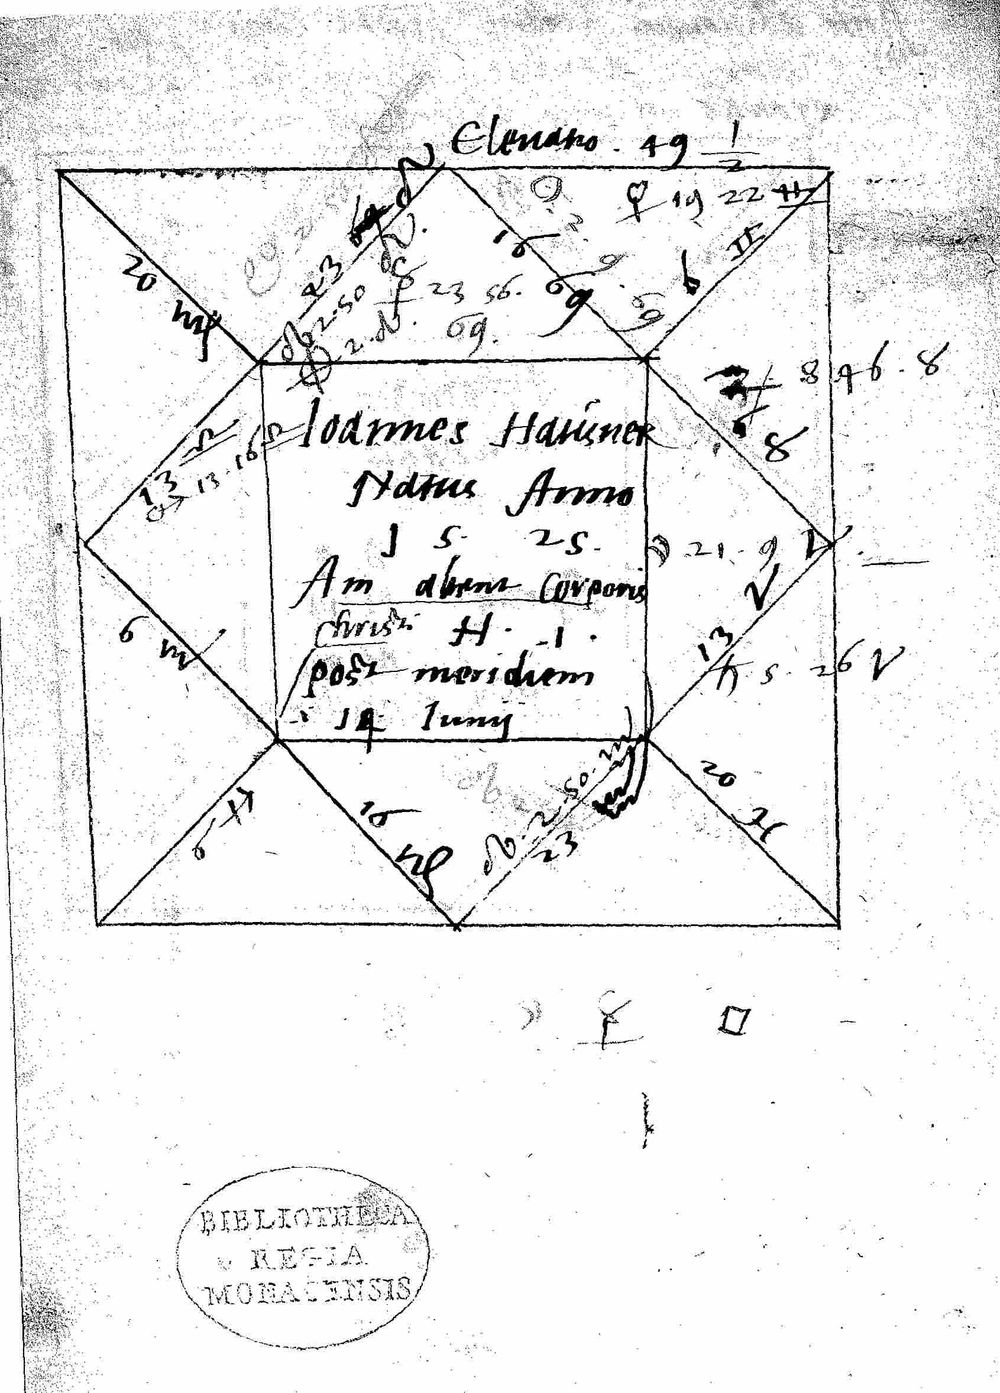 Elevatio. 49 1/2
♀ 19 22 ♊
23 ♌
16 ♋
6 ♊
20 ♍
☿ 23 56.
♋.
♃ 8 46. 8
8
13 ♎
♂ 13. 16 ♎
Ioannes Hausner
Natus Anno
1 5. 25.
Am abent Corporis
Christi H. 1.
post meridiem
14 Iunij
☽ 21. 9 ♈.
13 ♈
♄ 5. 26 ♈
6 ♏
20 ♓
6 ♐
16 ♑
2. 50. ♒
23 ♒
☽ ☿ □
BIBLIOTHECA
REGIA
MONACENSIS